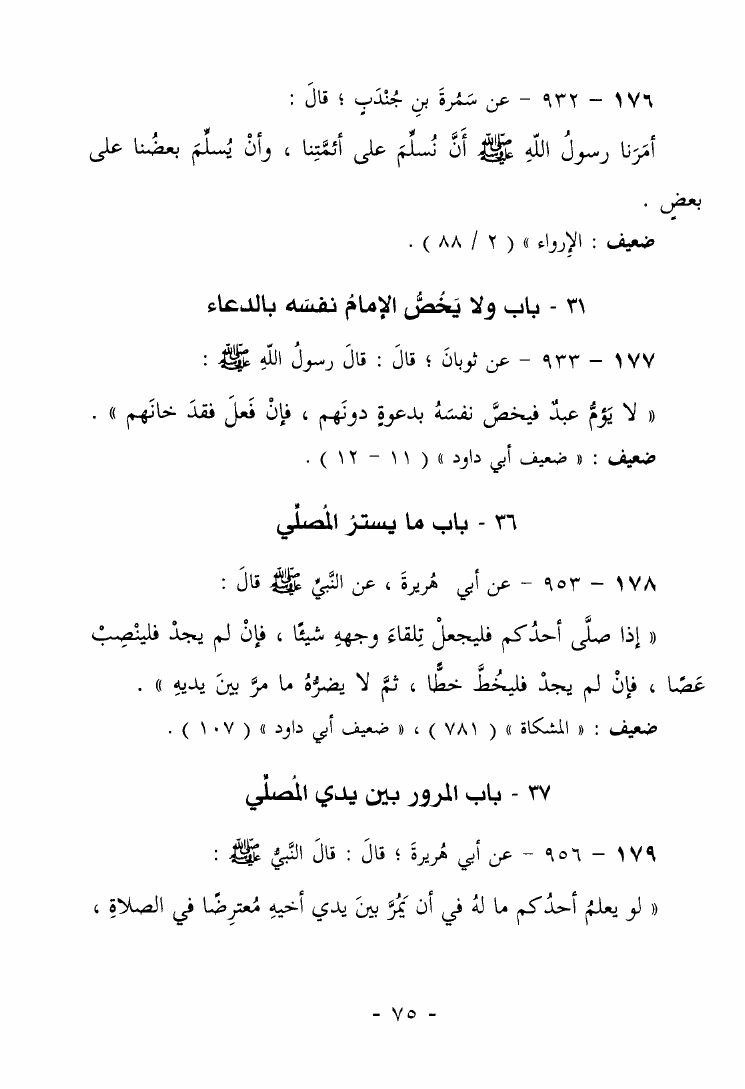 ١٧٦ – ٩٣٢ – عن سَمُرةَ بنِ جُنْدَبٍ ؛ قالَ :
أمَرَنا رسولُ اللّهِ ﷺ أَنَّ نُسلِّمَ على أئمَّتِنا ، وأنْ يُسلِّمَ بعضُنا على
بعضٍ .
ضعيف : الإرواء » ( ٢ / ٨٨ ) .
٣١ - باب ولا يَخُصُّ الإمامُ نفسَه بالدعاء
١٧٧ – ٩٣٣ – عن ثوبانَ ؛ قالَ : قالَ رسولُ اللّهِ ﷺ :
« لا يَؤمُّ عبدٌ فيخصَّ نفسَهُ بدعوةٍ دونَهم ، فإنْ فَعلَ فقدَ خانَهم » .
ضعيف : « ضعيف أبي داود » ( ١١ – ١٢ ) .
٣٦ - باب ما يسترُ المُصلِّي
١٧٨ – ٩٥٣ – عن أبي هُريرةَ ، عن النَّبيِّ ﷺ قالَ :
« إذا صلَّى أحدُكم فليجعلْ تِلقاءَ وجههِ شيئًا ، فإنْ لم يجدْ فلينْصِبْ
عَصًا ، فإنْ لم يجدْ فليخُطَّ خطًّا ، ثمَّ لا يضرُّهُ ما مرَّ بينَ يديهِ » .
ضعيف : « المشكاة » ( ٧٨١ ) ، « ضعيف أبي داود » ( ١٠٧ ) .
٣٧ - باب المرور بين يدي المُصلِّي
١٧٩ – ٩٥٦ – عن أبي هُريرةَ ؛ قالَ : قالَ النَّبيُّ ﷺ :
« لو يعلمُ أحدُكم ما لهُ في أن يَمُرَّ بينَ يدي أخيهِ مُعترِضًا في الصلاةِ ،
- ٧٥ -